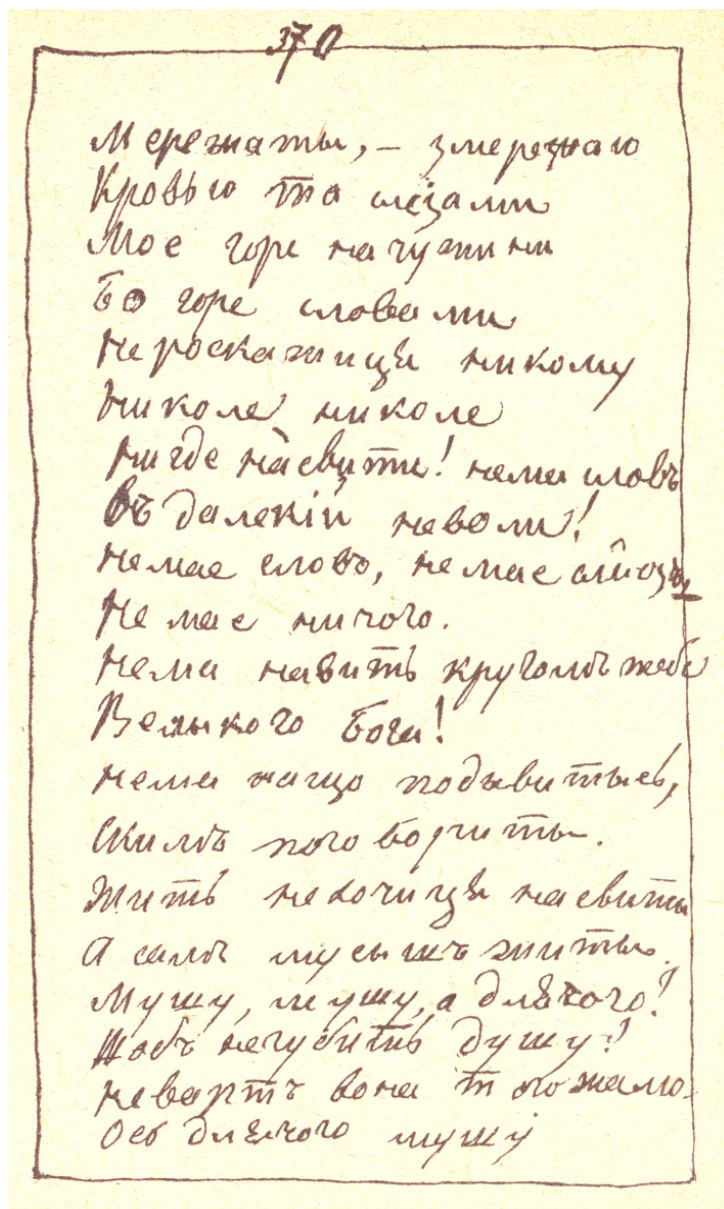 370
Мережаты, – змережаю
Кровью та слізами
Мое горе на чужини
Бо горе словами
Не роскажиця никому
Николе николе
Нигде на свити! нема словъ
Въ далекій неволи!
Немае словъ, немае слёзъ,
Немае ничого.
Нема навить кругомъ тебе
Велыкого Бога!
Нема нащо подывитысь,
Скимъ поговорити.
Жить не хочиця на свити
А самъ мусышъ жити.
Мушу, мушу, а для чого?
Щобъ не губить душу?
Не вартъ вона того жалю.
Ось для чого мушу